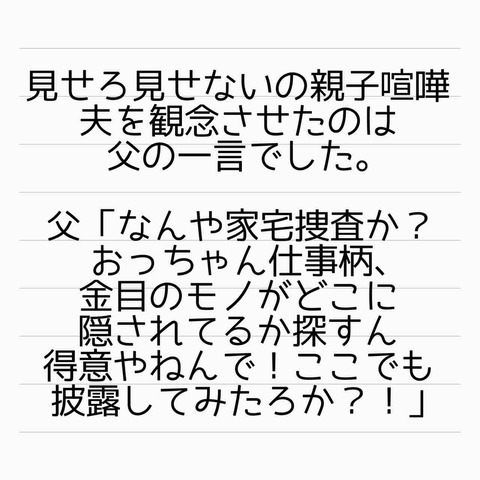 見せろ見せないの親子喧嘩
夫を観念させたのは
父の一言でした。
父「なんや家宅捜査か？
おっちゃん仕事柄、
金目のモノがどこに
隠されてるか探すん
得意やねんで！ここでも
披露してみたろか？！」